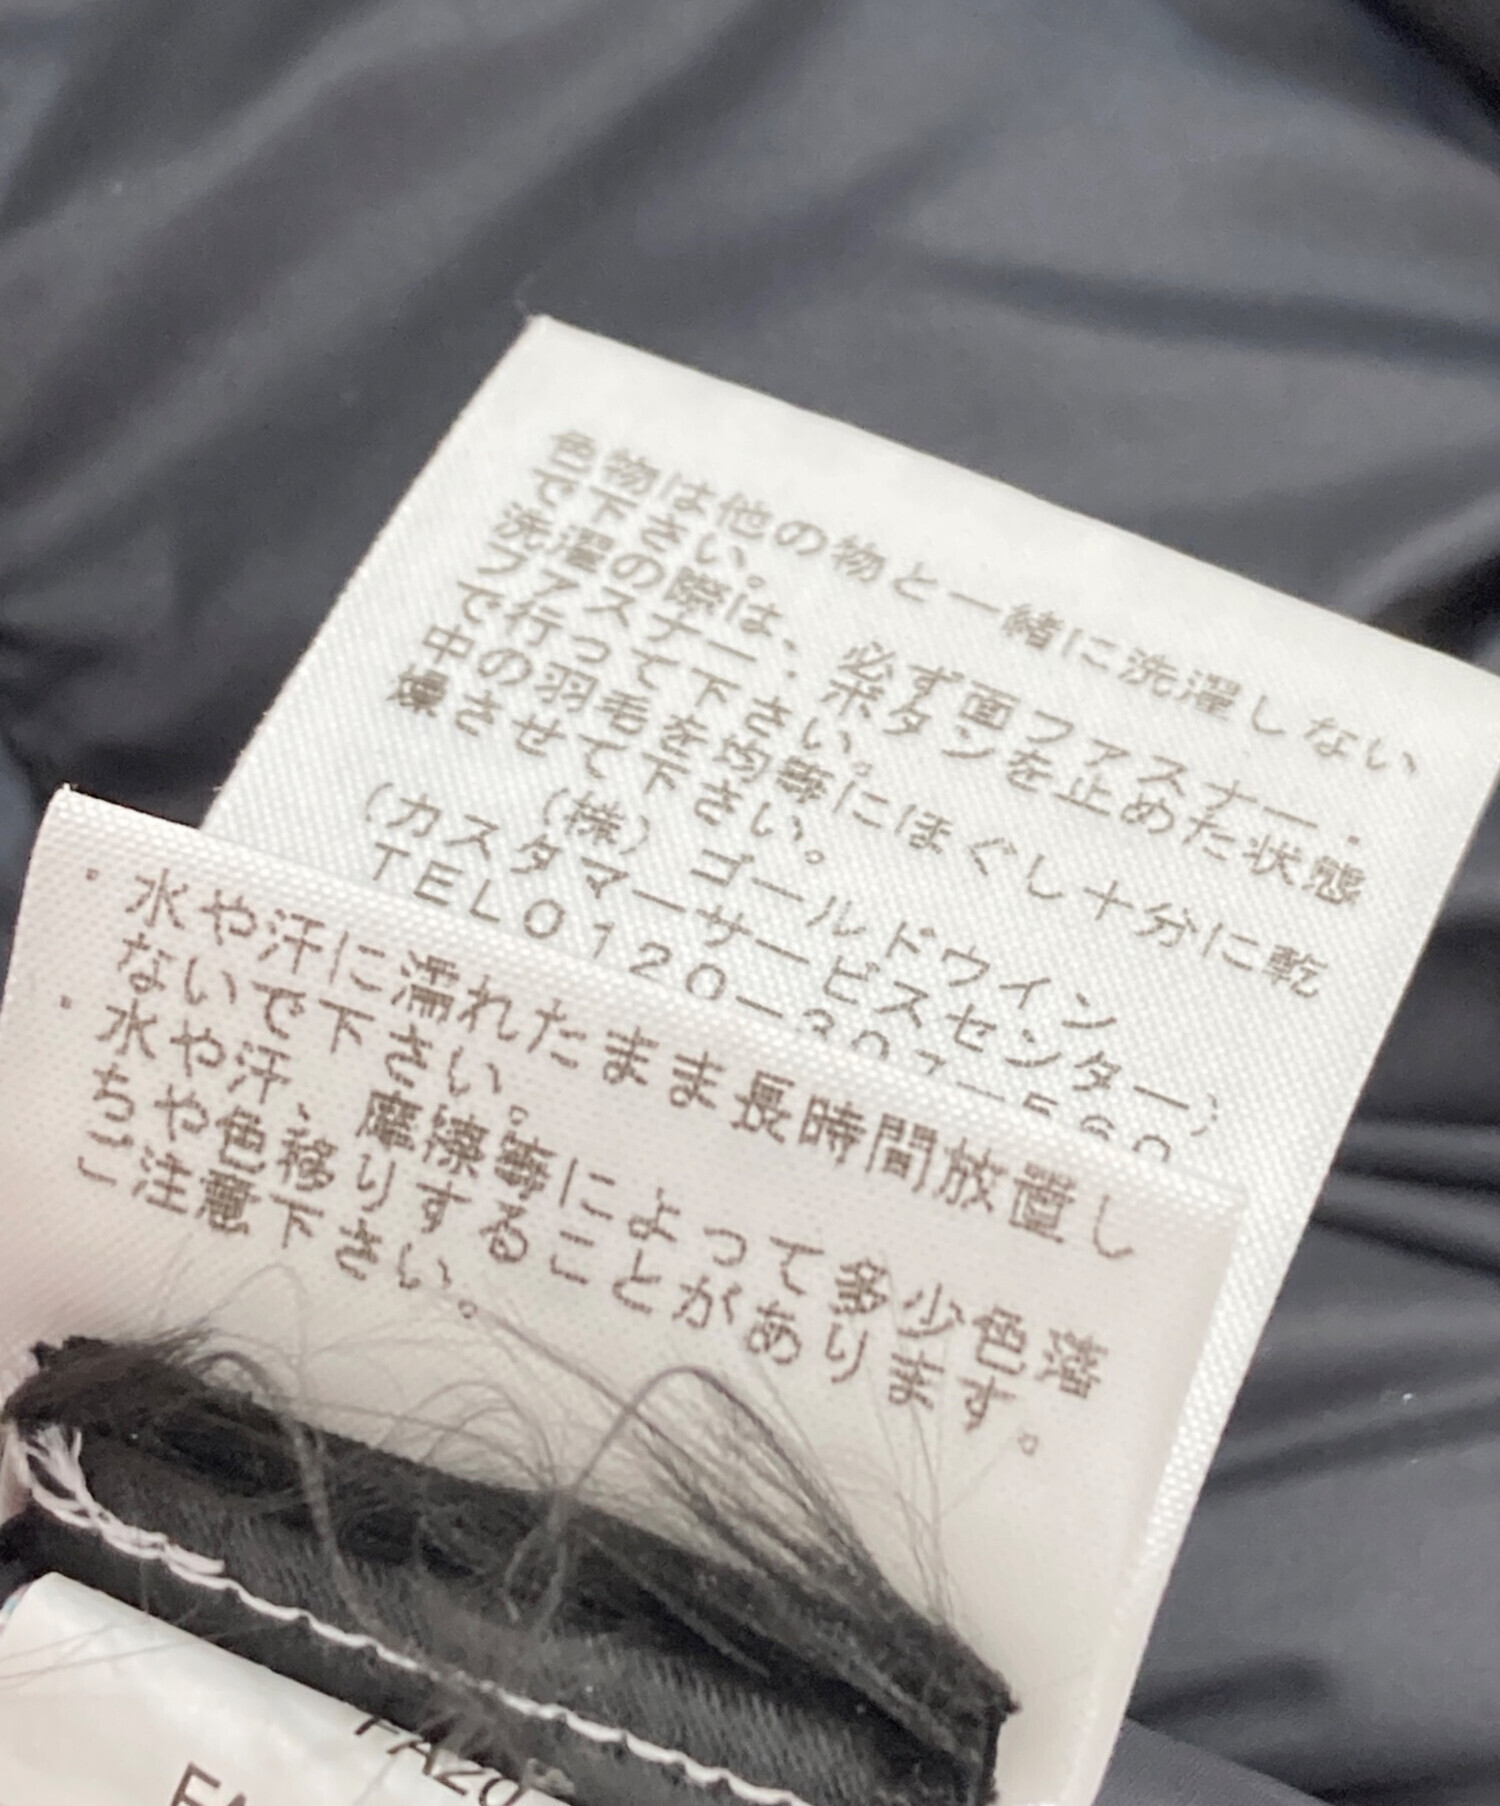 色物は他の物と一緒に洗濯しない
で下さい。
洗濯の際は、必ず面ファスナー・
ファスナー・ボタンを止めた状態
で行って下さい。
中の羽毛を均等にほぐし十分に乾
燥させて下さい。
(株)ゴールドウイン
(カスタマーサービスセンター)
TEL0120-307-560
・水や汗に濡れたまま長時間放置し
ないで下さい。
・水や汗、摩擦等によって多少色落
ちや色移りすることがあります。
ご注意下さい。
FA20